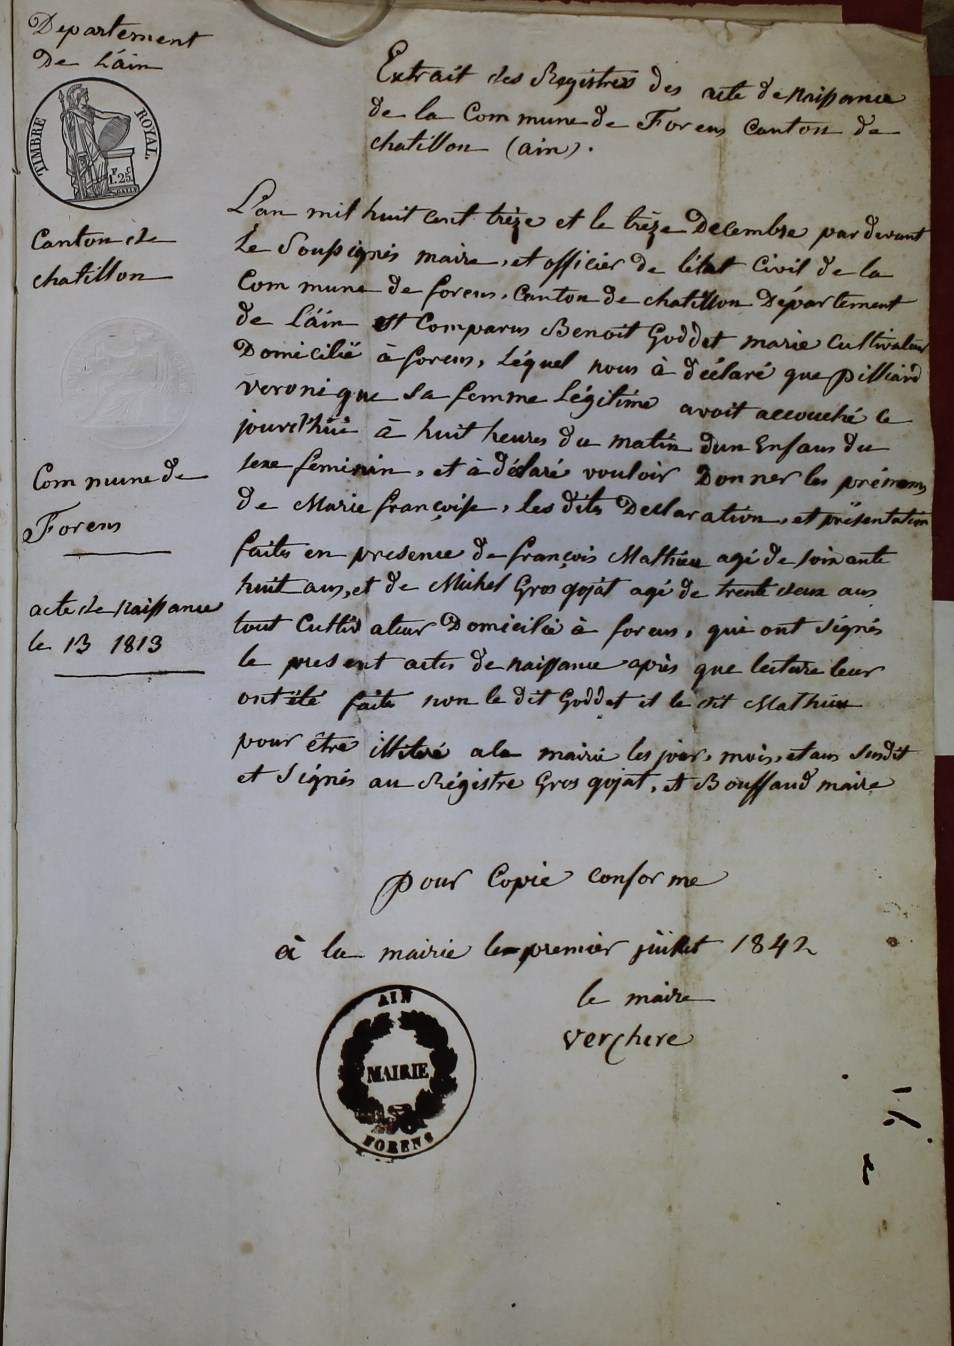 Departement
De L'áin
TIMBRE ROYAL.
1. 25
Canton de
chatillon
Commune de
Forens
acte de Naissance
le 13 1813
Extrait des Registres des acte de Naissance
de la Commune de Forens Canton de
chatillon (ain).
L'an mil huit cent trèze et le trèze Decembre par devant
Le Soussignés maire, et officier de l'état Civil de la
Commune de forens, Canton de chatillon Département
de L'áin est Comparus Benoit Goddet marie Cultivateur
Domicilié à forens, Léquel nous à déclaré que pilliard
veronique sa femme Légitime avoit accouché ce
jourd'hüi à huit heures du matin d'un Enfans du
sexe feminin, et à déclaré vouloir Donner les prénoms
de Marie françoise, les dites Declaration, et présentation
faites en presence de françois Mathieu agé de soixante
huit ans, et de Michel Gros gojat agé de trente deux ans
tout Cultivateur Domicilié à forens, qui ont Signés
le present actes de naissance après que lecture leur
ont été faite non le dit Goddet et le dit Mathieu
pour être illitéré a la mairie les jour, mois, et ans susdit
et Signés au Régistre Gros gojat, et Bouffaud maire
pour Copie conforme
à la mairie le premier jüillet 1842
le maire
Verchere
AIN
MAIRIE
FORENS